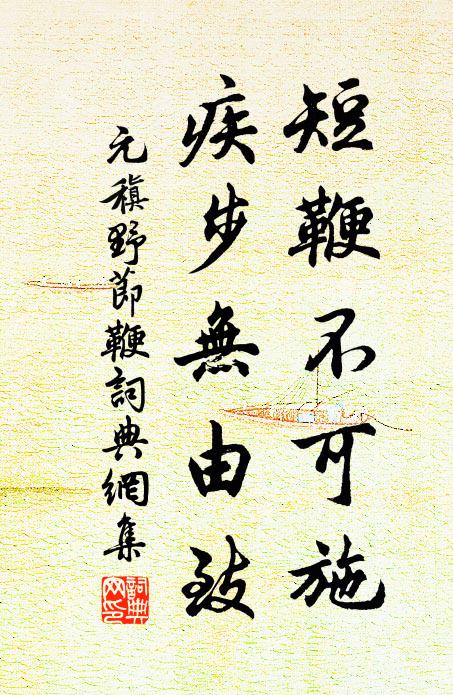 短鞭不可施
疾步無由致
元稹野節鞭詞典網集
詞典網印